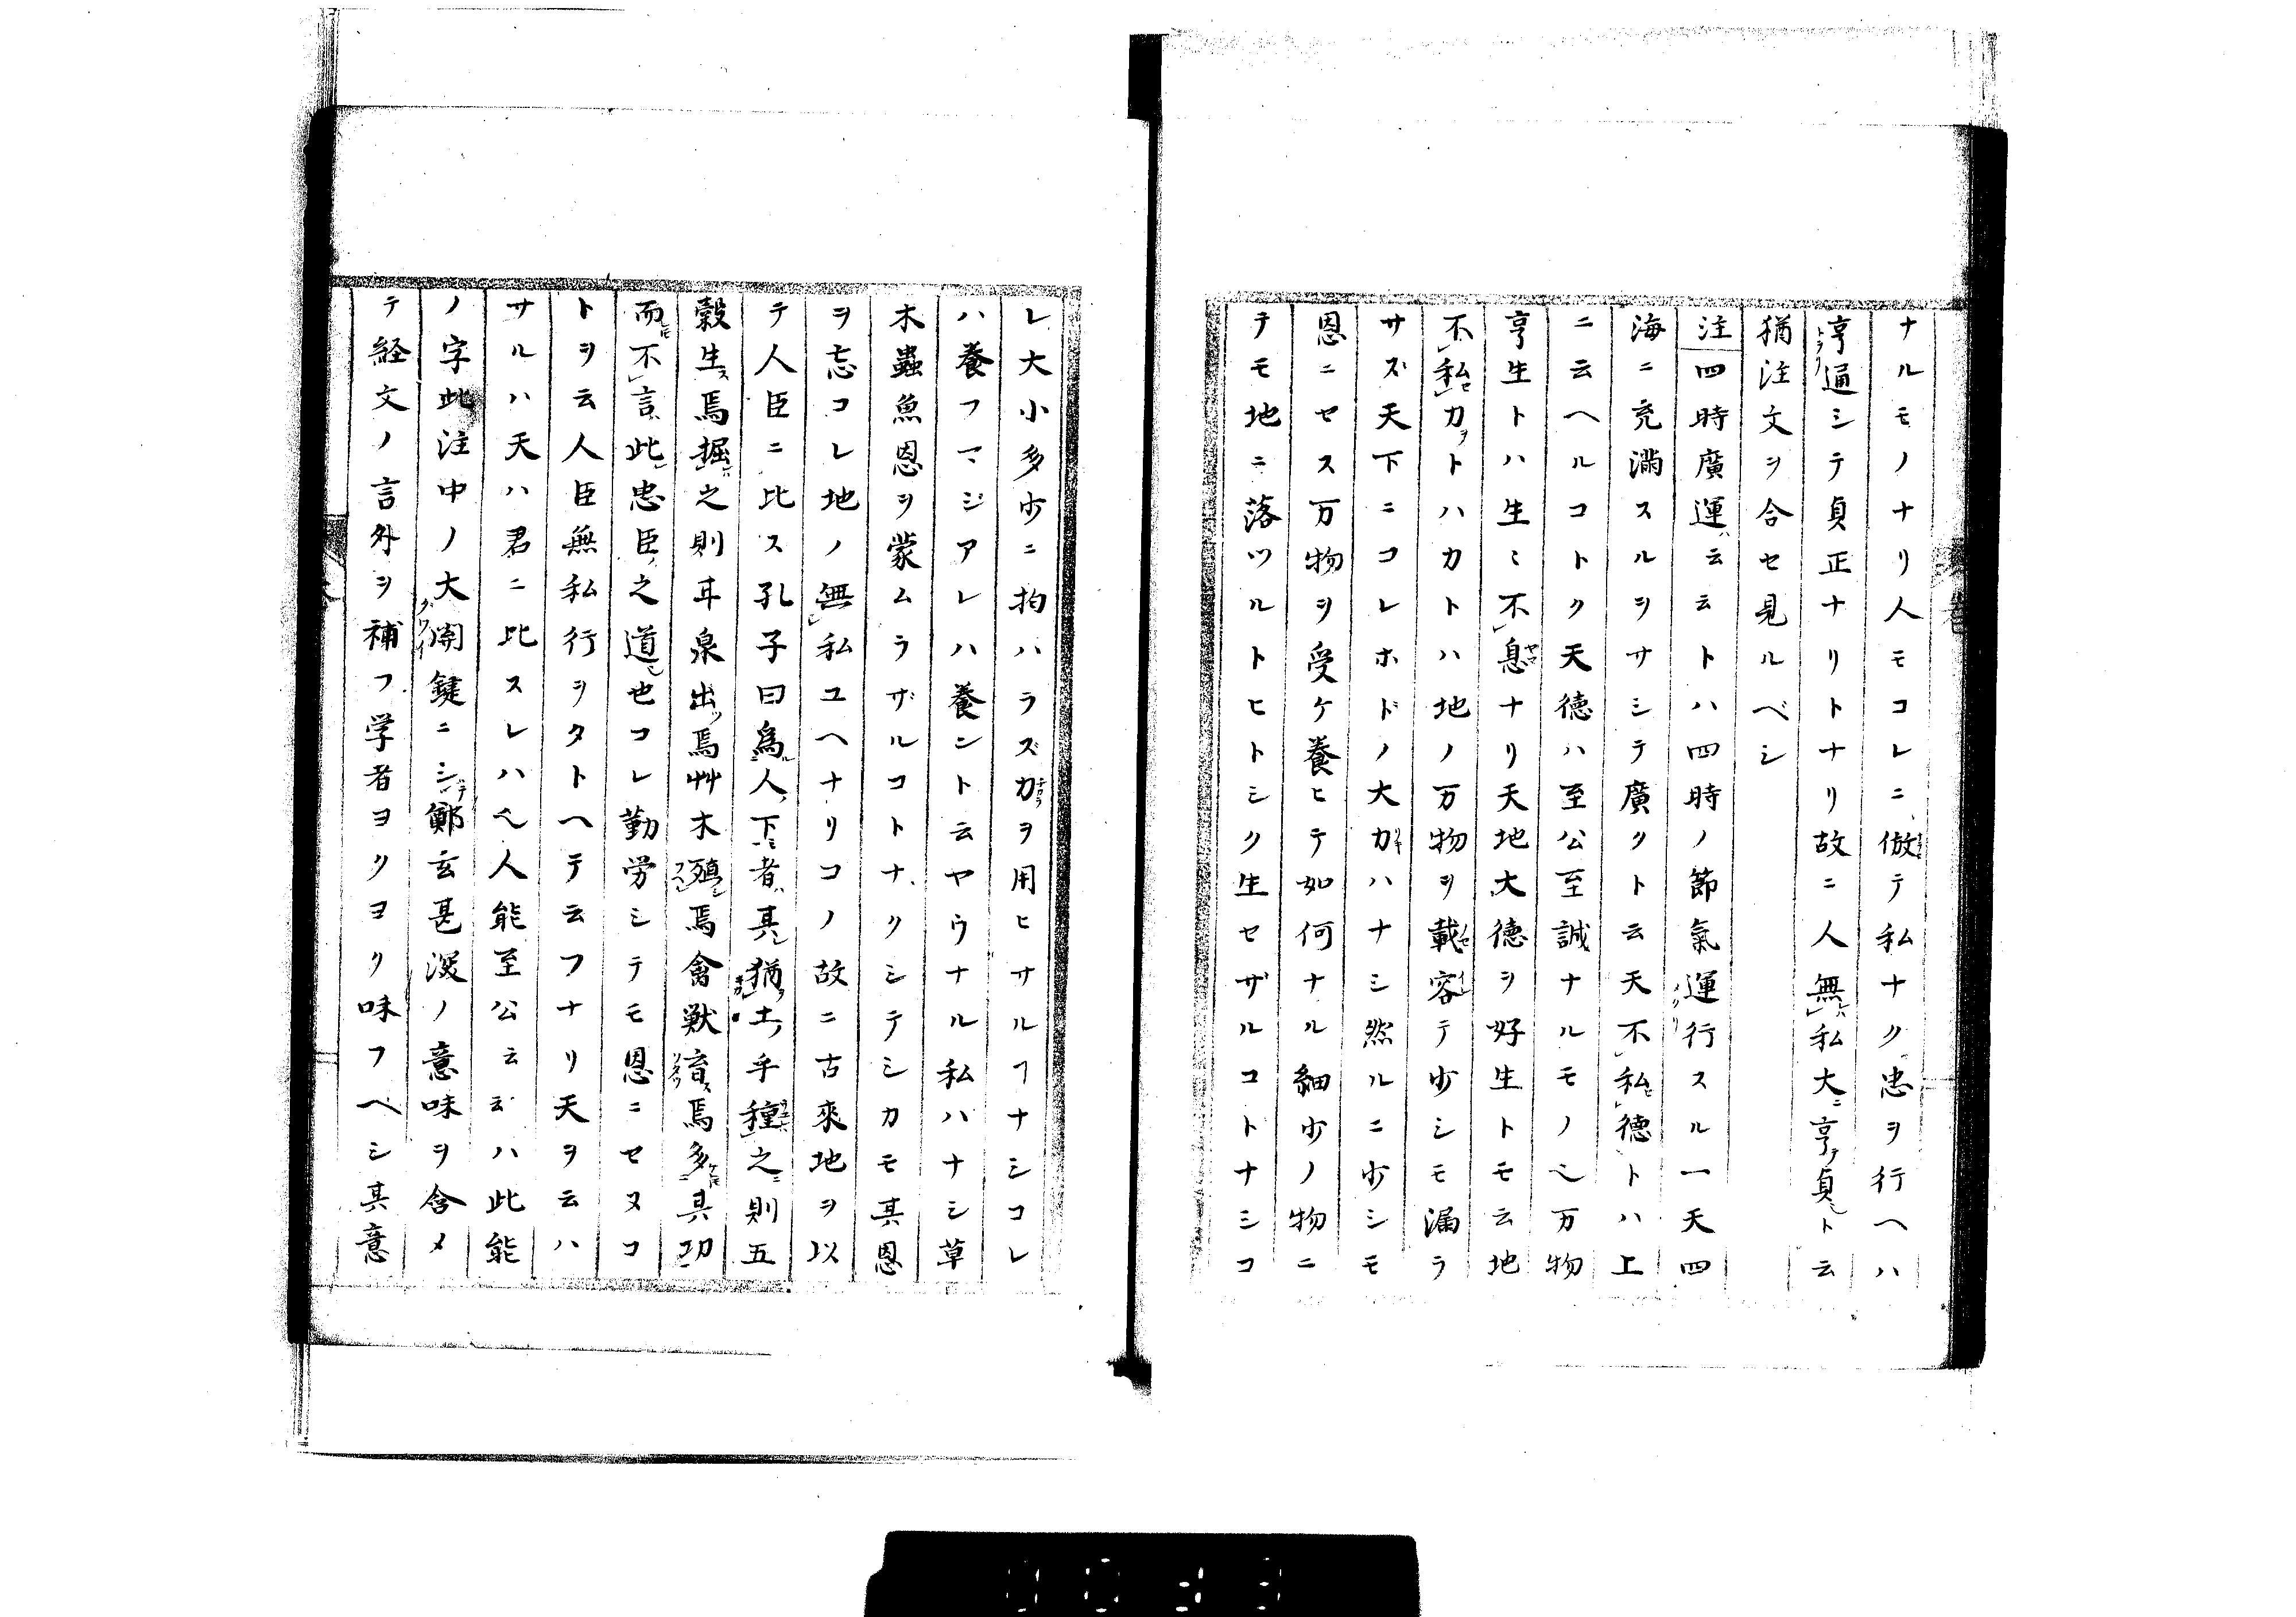 ナルモノナリ人モコレニ倣テ私ナク忠ヲ行ヘハ
亨通シテ貞正ナリトナリ故ニ人無私大ニ亨テ貞ト云
猶注文ヲ合セ見ルベシ
注四時廣運云云トハ四時ノ節氣運行スル一天四
海ニ充滿スルヲサシテ廣クト云天不私德トハ上
ニ云ヘルコトク天徳ハ至公至誠ナルモノ也万物
亨生トハ生〻不息ナリ天地大德ヲ好生トモ云地
不私力ヲトハカトハ地ノ万物ヲ載容テ少シモ漏ラ
サズ天下ニコレホドノ大力ハナシ然ルニ少シモ
恩ニセス万物ヲ受ケ養ヒテ如何ナル細少ノ物ニ
テモ地ニ落ツルトヒトシク生セザルコトナシコ
レ大小多少ニ拘ハラズ力ヲ用ヒサルヿナシコレ
ハ養フマジアレハ養ントニ云ヤウナル私ハナシ草
木蟲魚恩ヲ蒙ムラザルコトナクシテシカモ其恩
ヲ忘コレ地ノ無私ユヘナリコノ故ニ古來地ヲ以
テ人臣ニ比ス孔子曰爲人下者其猶土乎種之則五
穀生焉掘之則甘泉出焉艸木殖焉禽獣育焉多其功
而不言此忠臣之道也コレ勤労シテモ恩ニセヌコ
トヲ云人臣無私行ヲタトヘテ云フナリ天ヲ云ハ
サルハ天ハ君ニ比スレハ也人能至公云云ハ此能
ノ字此注中ノ大関鍵ニシテ鄭玄甚深ノ意味ヲ含メ
テ経文ノ言外ヲ補フ学者ヨクヨク味フヘシ其意